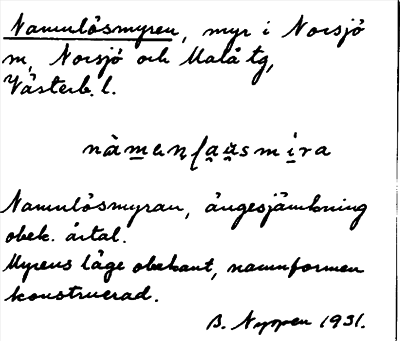 Namnlösmyren, myr i Norsjö
m, Norsjö och Malå tg,
Västerb. l.
Namnlösmyran, ängesjämkning
obek. årtal.
Myrens läge obekant, namnformen
konstruerad.
B. Nyppen 1931.